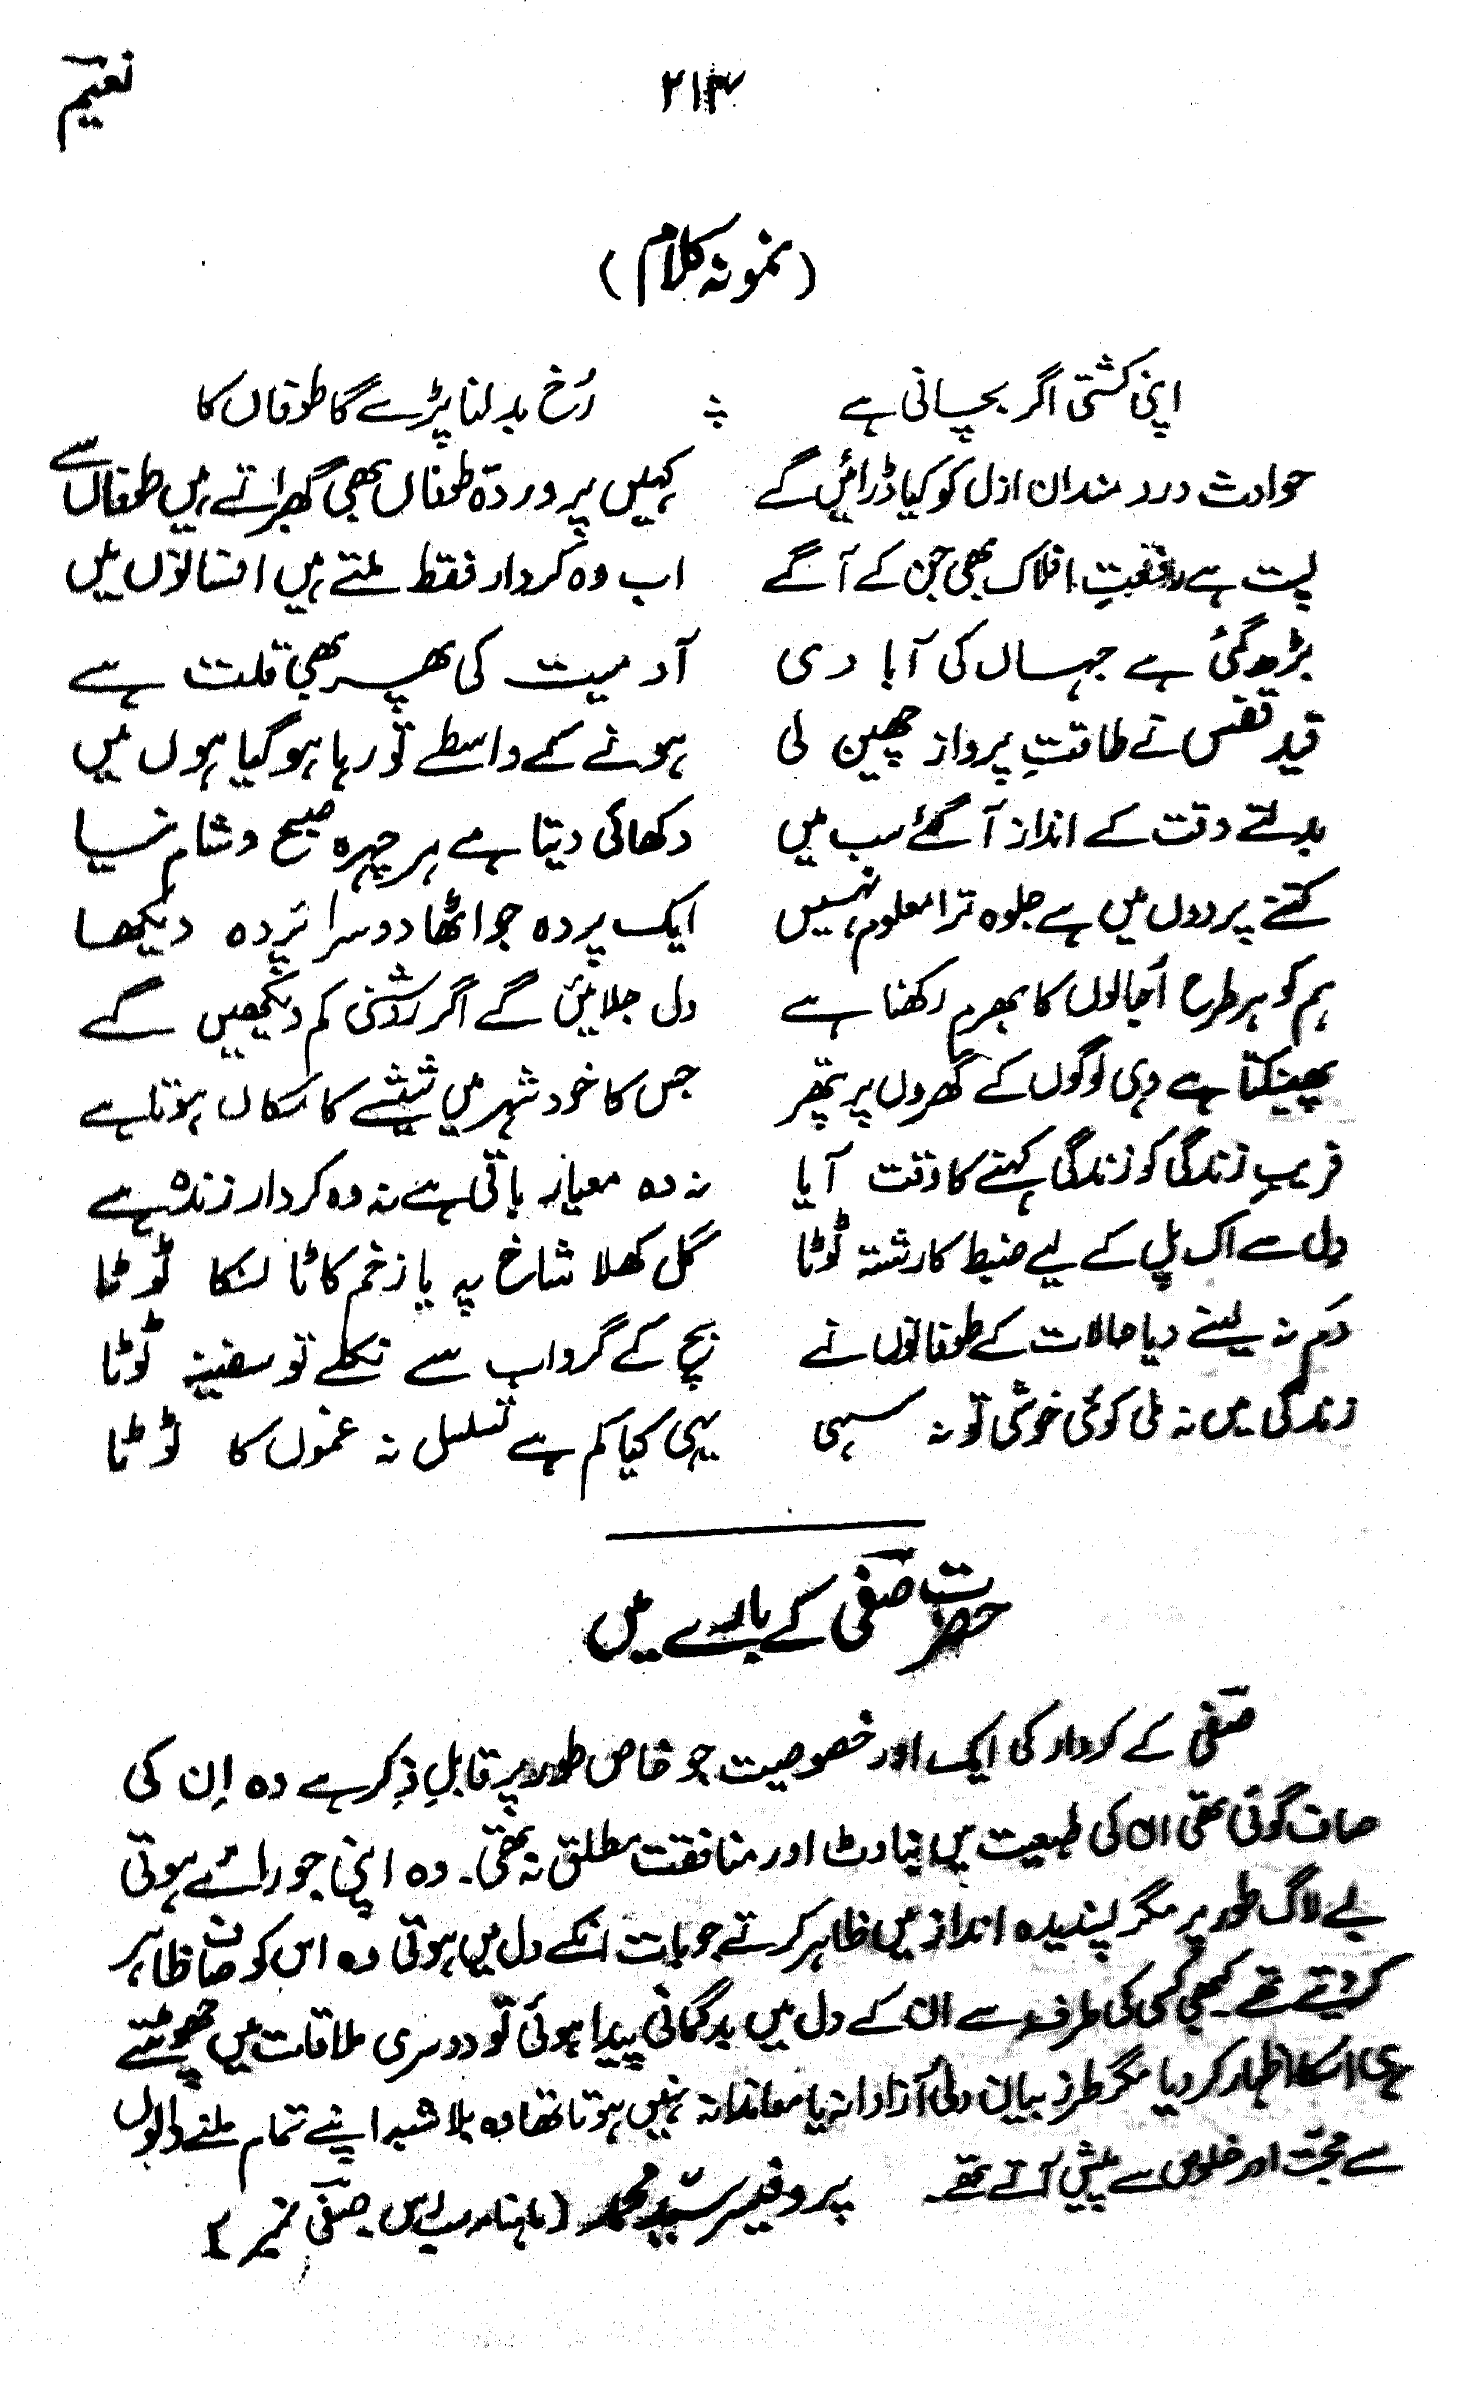 نعیم
۲۱۳
(نمونہ کلام)
اپنی کشتی اگر بچانی ہے ؎ رُخ بدلنا پڑے گا طوفاں کا
حوادث درد مندان ازل کو کیا ڈرائیں گے کہیں پروردۂ طوفاں بھی گھبراتے ہیں طوفاں سے
پست ہے رفعتِ افلاک بھی جن کے آگے اب وہ کردار فقط ملتے ہیں افسانوں میں
بڑھ گئی ہے جہاں کی آبادی آدمیت کی پھر بھی قلت ہے
قید قفس نے طاقتِ پرواز چھین لی ہونے کے واسطے تو رہا ہو گیا ہوں میں
بدلتے وقت کے انداز آ گئے سب میں دکھائی دیتا ہے ہر چہرہ صبح و شام نیا
کتنے پردوں میں ہے جلوہ ترا معلوم نہیں ایک پردہ جو اٹھا دوسرا پردہ دیکھا
ہم کو ہر طرح اُجالوں کا بھرم رکھنا ہے دل جلائیں گے اگر روشنی کم دیکھیں گے
پھینکتا ہے وہی لوگوں کے گھروں پر پتھر جس کا خود شہر میں شیشے کا مکاں ہوتا ہے
فریبِ زندگی کو زندگی کہنے کا وقت آیا نہ وہ معیار باقی ہے نہ وہ کردار زندہ ہے
دل سے اک پل کے لیے ضبط کا رشتہ ٹوٹا گل کھلا شاخ پہ یا زخم کا ٹانکا ٹوٹا
دم نہ لینے دیا حالات کے طوفانوں نے بچ کے گرداب سے نکلے تو سفینہ ٹوٹا
زندگی میں نہ ملی کوئی خوشی تو نہ سہی یہی کیا کم ہے تسلسل نہ غموں کا ٹوٹا
حضرت صفی کے بارے میں
صفی کے کردار کی ایک اور خصوصیت جو خاص طور پر قابلِ ذکر ہے وہ اِن کی
صاف گوئی تھی ان کی طبیعت میں بناوٹ اور منافقت مطلق نہ تھی۔ وہ اپنی جو رائے ہوتی
بے لاگ طور پر مگر پسندیدہ انداز میں ظاہر کرتے جو بات انکے دل میں ہوتی وہ اس کو صاف ظاہر
کردیتے تھے۔ کبھی کسی کی طرف سے ان کے دل میں بدگمانی پیدا ہوئی تو دوسری ملاقات میں چھوٹتے
ہی اسکا اظہار کر دیا مگر طرز بیان دلی آزادانہ یا معاندانہ نہیں ہوتا تھا وہ بلا شبہ اپنے تمام ملنے والوں
سے محبت اور خلوص سے پیش آتے تھے۔ پروفیسر سید محمد (ماہنامہ سب رس صفی نمبر)